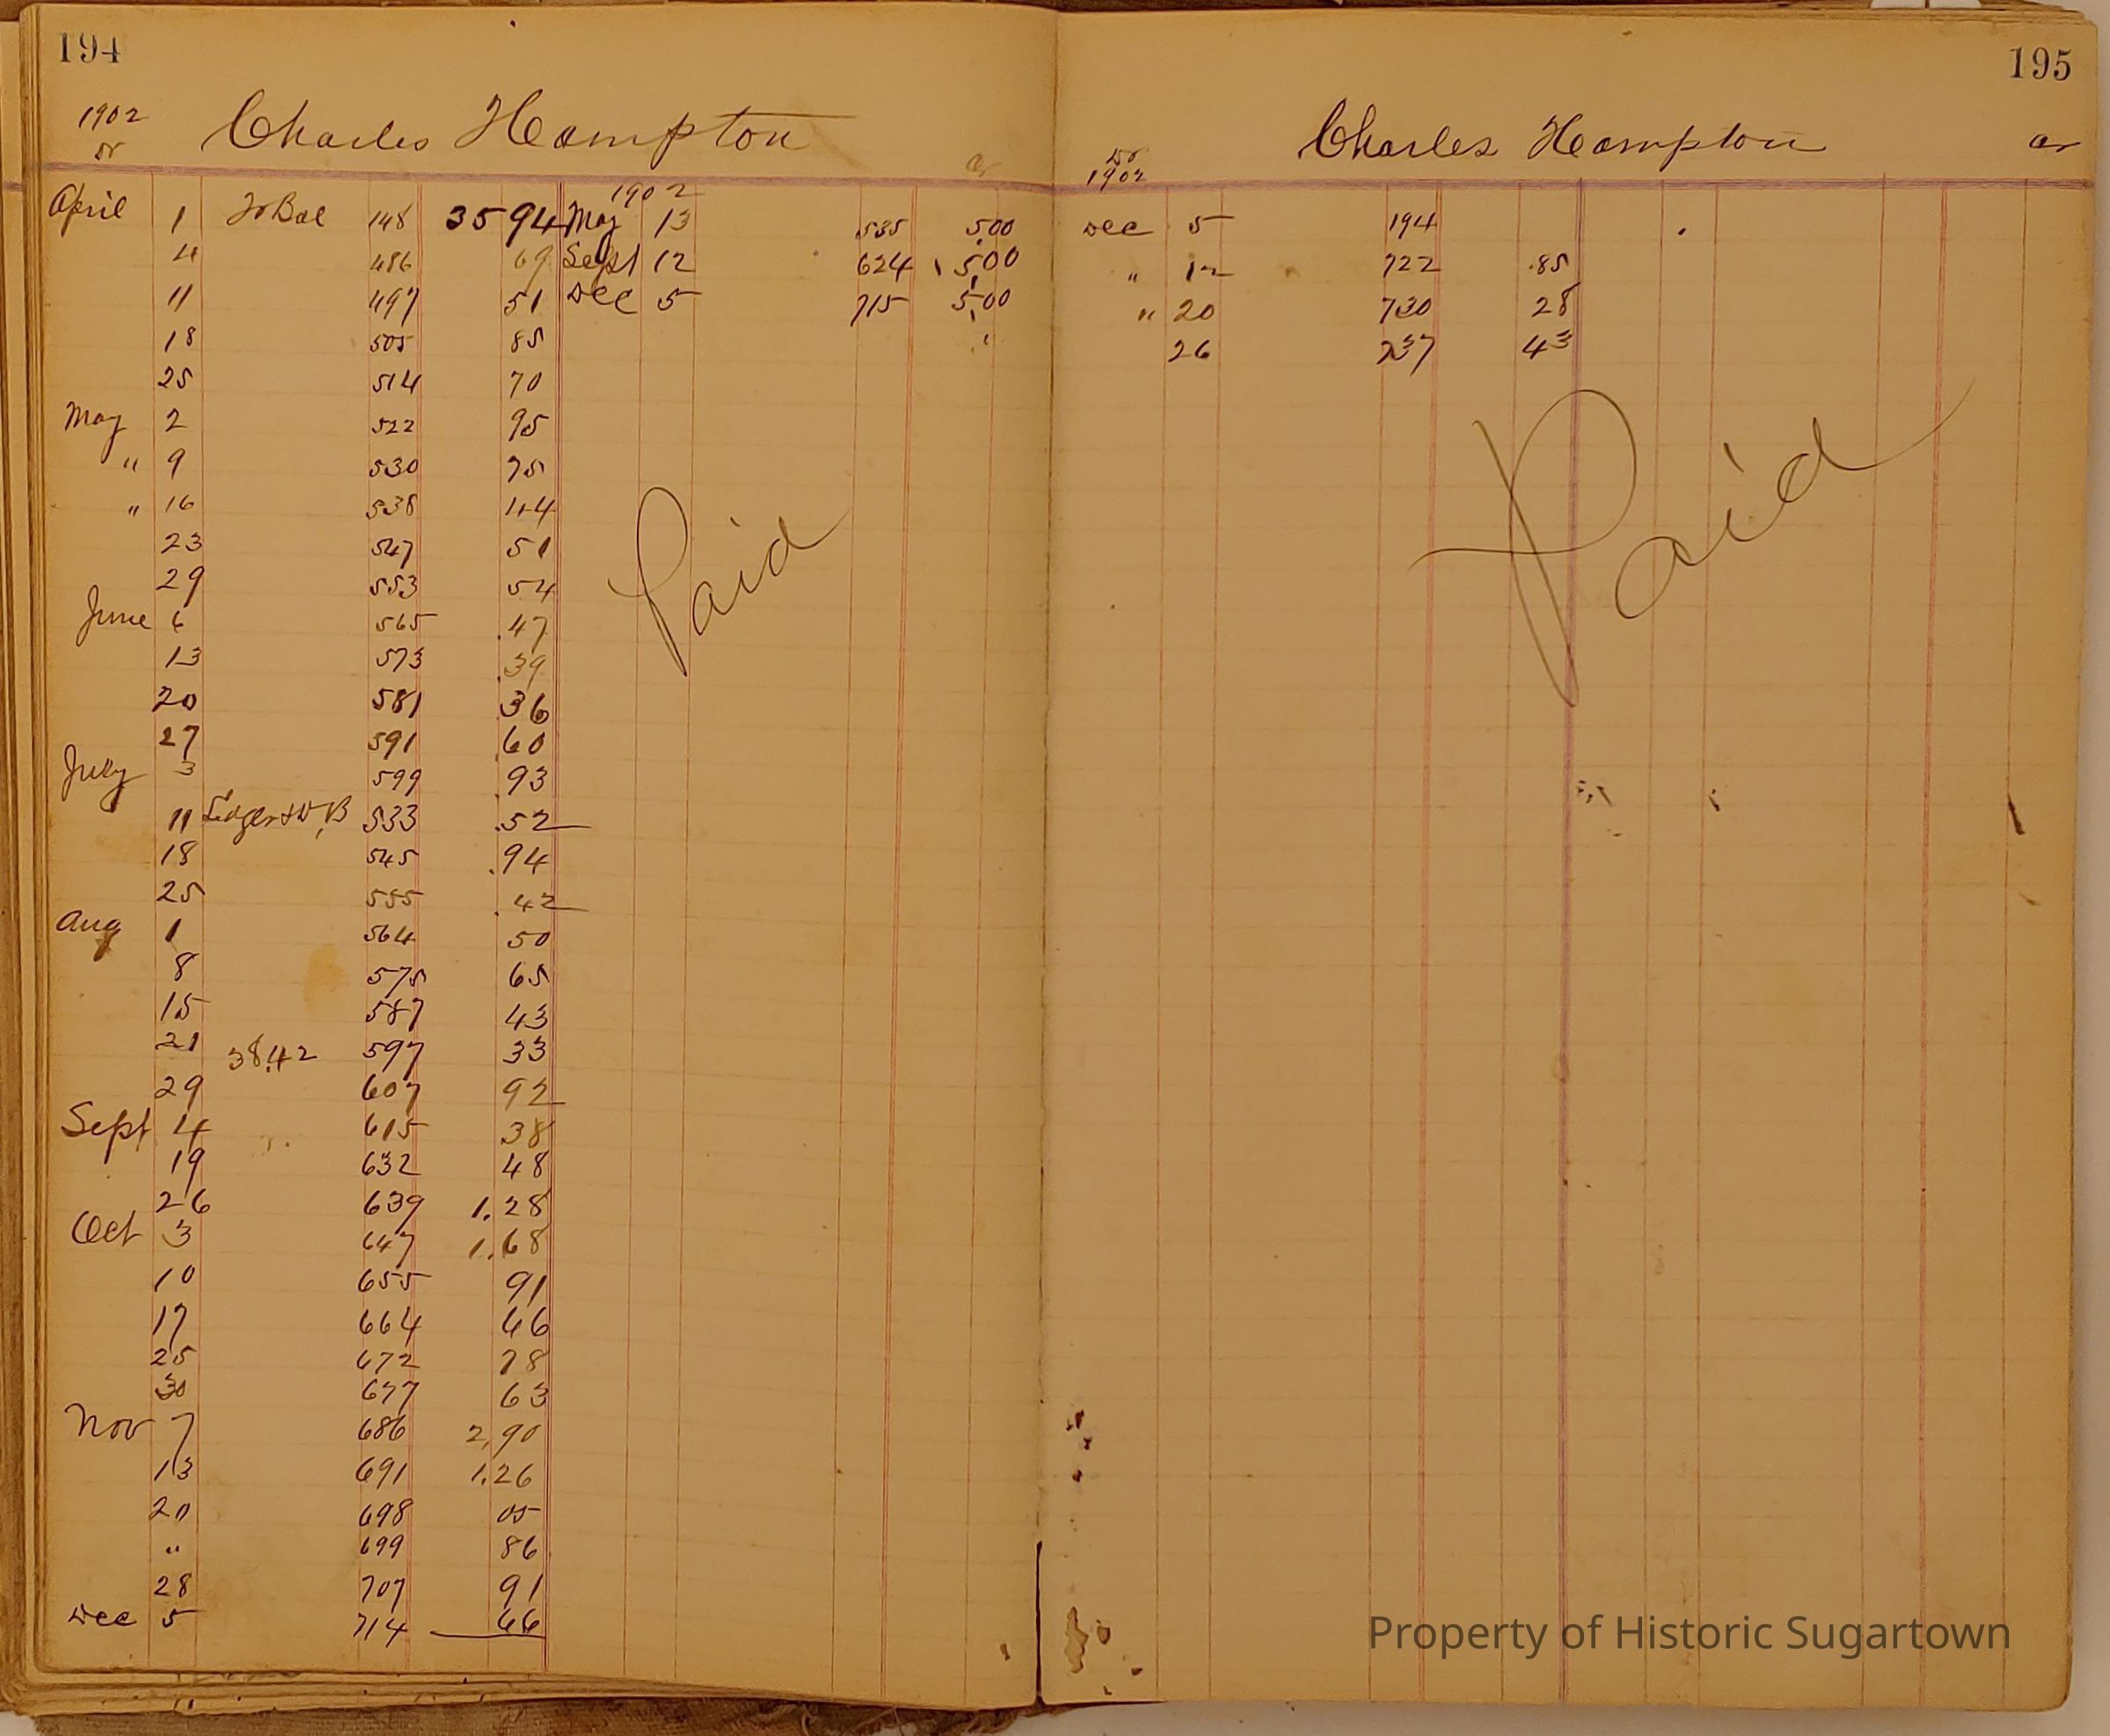 194
1902
Dr Charles Hampton Cr
April 1 To Bal 148 35 94
4 486 69
11 497 51
18 505 85
25 514 70
May 2 522 95
" 9 530 75
" 16 538 44
23 547 51
29 553 54
June 6 565 .47
13 573 .39
20 581 .36
27 591 60
July 3 599 .93
11 Ledger & D,B 533 .52
18 545 .94
25 555 .42
Aug 1 564 50
8 575 65
15 587 43
21 38.42 597 33
29 607 92
Sept 4 615 38
19 632 48
26 639 1.28
Oct 3 647 1.68
10 655 91
17 664 66
25 672 78
30 677 63
Nov 7 686 2,90
13 691 1.26
20 698 05
" 699 86
28 707 91
Dec 5 714 66
1902
May 13 535 5.00
Sept 12 624 5.00
Dec 5 715 5.00
Paid
195
Charles Hampton Cr
Dr
1902
Dec 5 194
" 12 722 .85
" 20 730 28
26 737 43
Paid
Property of Historic Sugartown